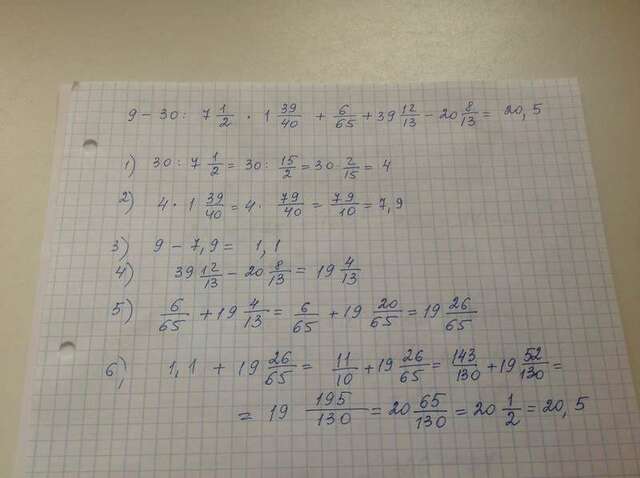 9 - 30 : 7 1/2 · 1 39/40 + 6/65 + 39 12/13 - 20 8/13 = 20,5
1) 30 : 7 1/2 = 30 : 15/2 = 30 · 2/15 = 4
2) 4 · 1 39/40 = 4 · 79/40 = 79/10 = 7,9
3) 9 - 7,9 = 1,1
4) 39 12/13 - 20 8/13 = 19 4/13
5) 6/65 + 19 4/13 = 6/65 + 19 20/65 = 19 26/65
6) 1,1 + 19 26/65 = 11/10 + 19 26/65 = 143/130 + 19 52/130 =
= 19 195/130 = 20 65/130 = 20 1/2 = 20,5